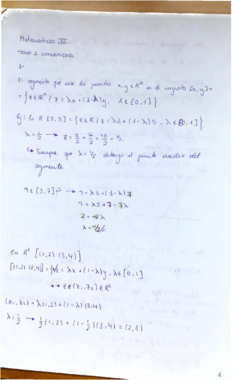 Matemáticas III.
TEMA 1: CONVEXIDAD
El segmento que une dos puntos x, y ∈ Rⁿ es el conjunto [x, y] =
= {z ∈ Rⁿ / z = λx + (1-λ)y, λ ∈ [0,1]}
Ej: En R [3,7] = {z ∈ R / z = λ3 + (1-λ)
λ = 1/2 → z =
↳ Siempre que λ = 1/2 obtengo el punto medio del
segmento.
[3,7] → = λ3 + (1-λ)7
= λ3 + 7 - 7λ
En R² [(1,2) (3,4)]
[(1,2) (3,4)] = λx + (1-λ)y, λ ∈ [0,1]
z ∈ (z₁, z₂) ∈ R²
(z₁, z₂) = λ(1,2) + (1-λ)(3,4)
λ = 1/2 → 1/2 (1,2) + (1-1/2)(3,4) = (2,3)